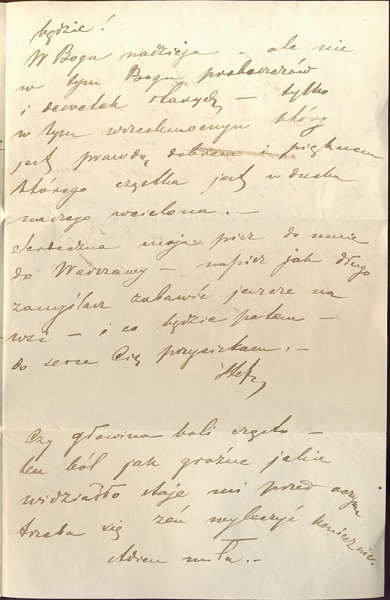 będzie!
W Bogu nadzieja – ale nie
w tym Bogu proboszczów
i dewotek starych – tylko
w tym wszechmocnym który
jest prawdą dobrem i pięknem
którego cząstka jest w duchu
naszego wcielona. –
Serdeczna moja pisz do mnie
do Warszawy – napisz jak długo
zamyślasz zabawić jeszcze na
wsi – i co będzie potem –
do serca Cię przyciskam. –
Czy główina boli często –
ten ból jak groźne jakie
widziadło staje mi przed oczyma
trzeba się zeń wyleczyć koniecznie.
Adieu miła. –